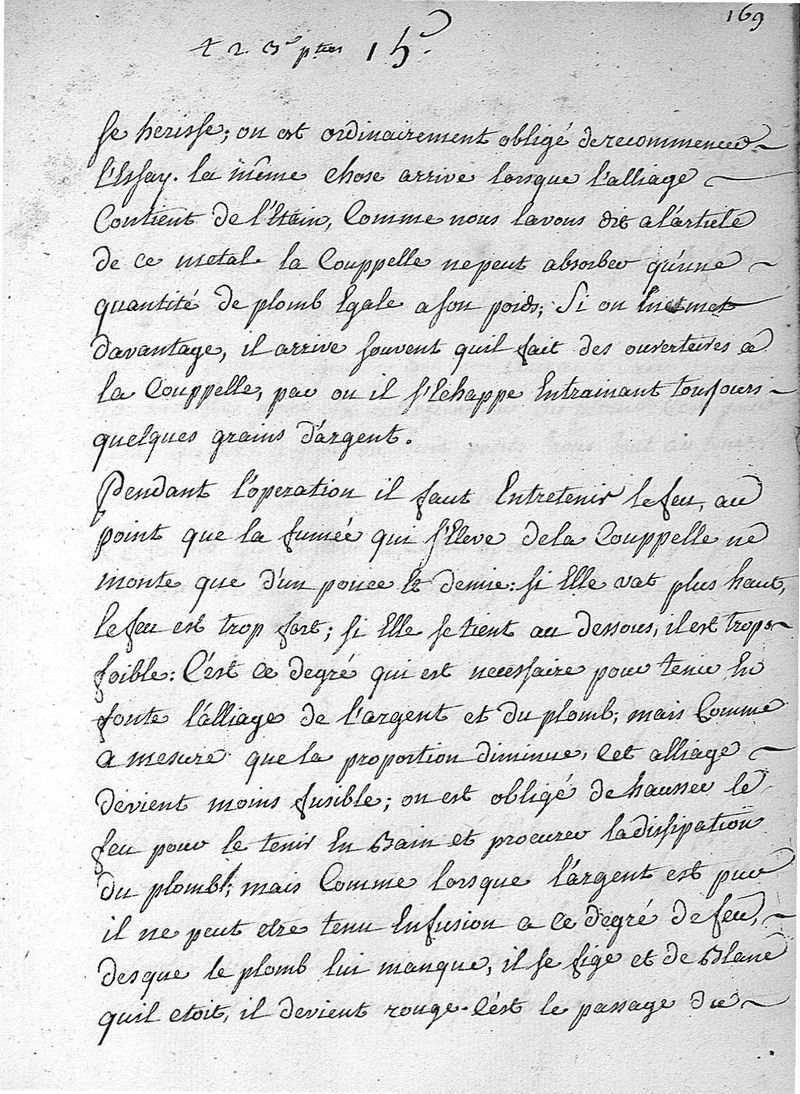 169
t 2. 3e ptie 15e.
se herisse; on est ordinairement obligé de recommencer
l'Essay. la même chose arrive lorsque l'alliage
Contient de l'Etain, Comme nous lavons dit a l'article
de ce metal. la Couppelle ne peut absorber qu'une
quantité de plomb Egale a son poids; Si on En met
davantage, il arrive souvent quil fait des ouvertures a
la Couppelle, par ou il s'Echappe Entrainant toujours
quelques grains d'argent.
Pendant l'operation il faut Entretenir le feu, au
point que la fumée qui s'Eleve de la Couppelle ne
monte que d'un pouce Et demie: si Elle vat plus haut,
le feu est trop fort; si Elle se tient au dessous, il est trop
foible: C'est ce degré qui est necessaire pour tenir En
fonte l'alliage de l'argent et du plomb; mais Comme
a mesure que la proportion diminue, Cet alliage
devient moins fusible; on est obligé de hausser le
feu pour le tenir En Bain et procurer la dissipation
du plomb; mais Comme lorsque l'argent est pur
il ne peut etre tenu En fusion a ce degré de feu,
des que le plomb lui manque, il se fige et de Blanc
quil etoit, il devient rouge. C'est le passage du